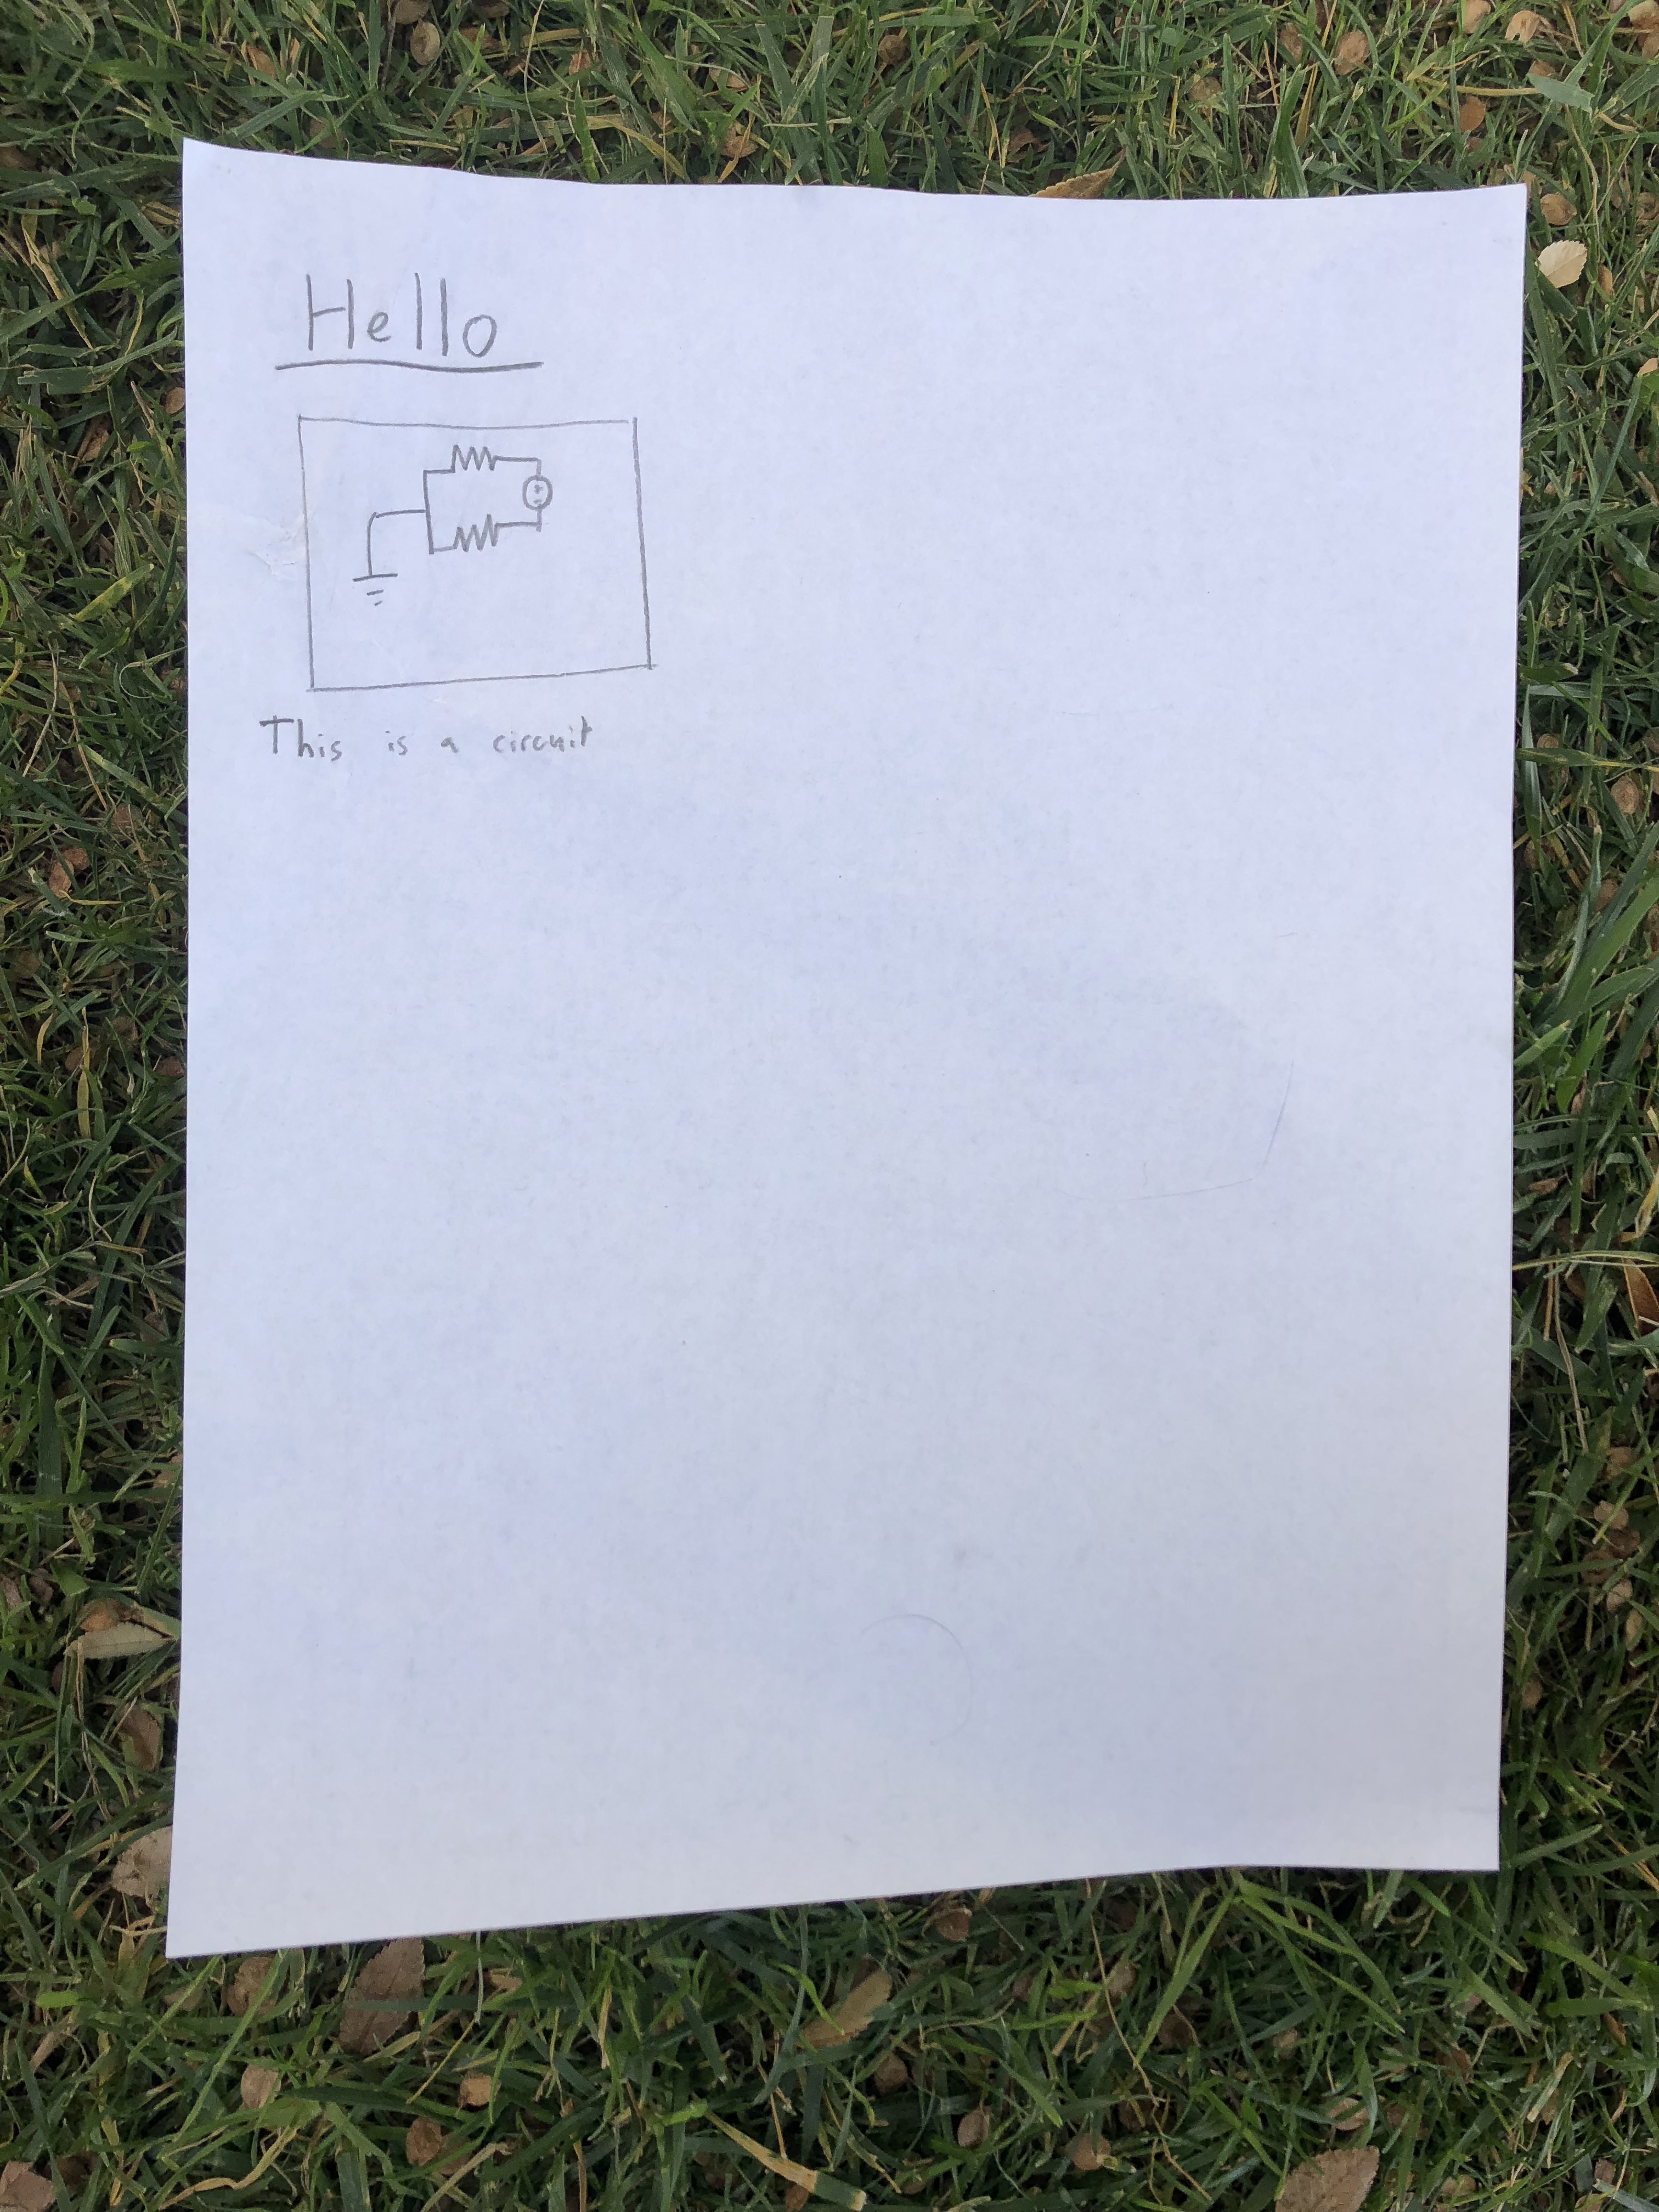 Hello
This is a circuit